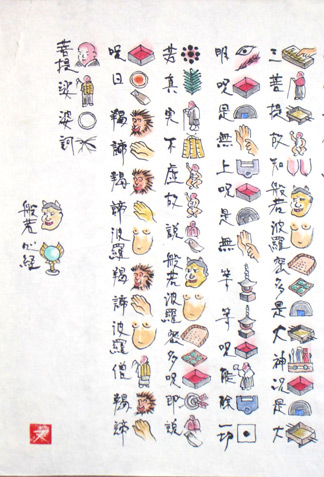 三菩提故知般若波羅蜜多是大神呪是大
明呪是無上呪是無等等呪能除一切
苦真実不虚故説般若波羅蜜多呪即説
呪曰羯諦羯諦波羅羯諦波羅僧羯諦
菩提娑婆訶
般若心経